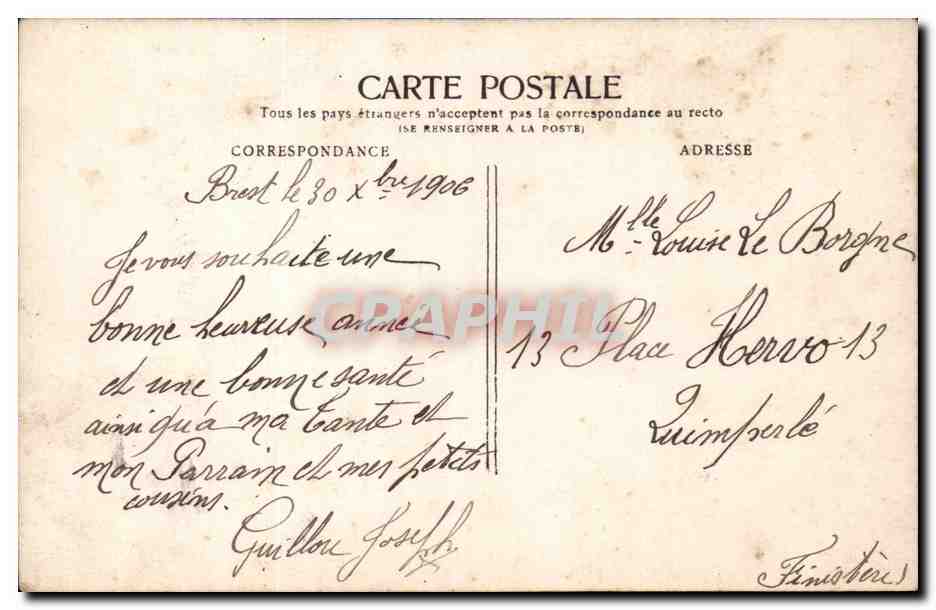 CARTE POSTALE
Tous les pays étrangers n'acceptent pas la correspondance au recto
(SE RENSEIGNER A LA POSTE)
CORRESPONDANCE
Brest le 30 Xbre 1906
Je vous souhaite une
bonne heureuse année
et une bonne santé
ainsi qu'a ma tante et
mon Parrain et mes petits
cousins.
Guillou Joseph
ADRESSE
Mlle Louise Le Borgne
13 Place Hervo 13
Quimperlé
Finistère
CPAPHIL